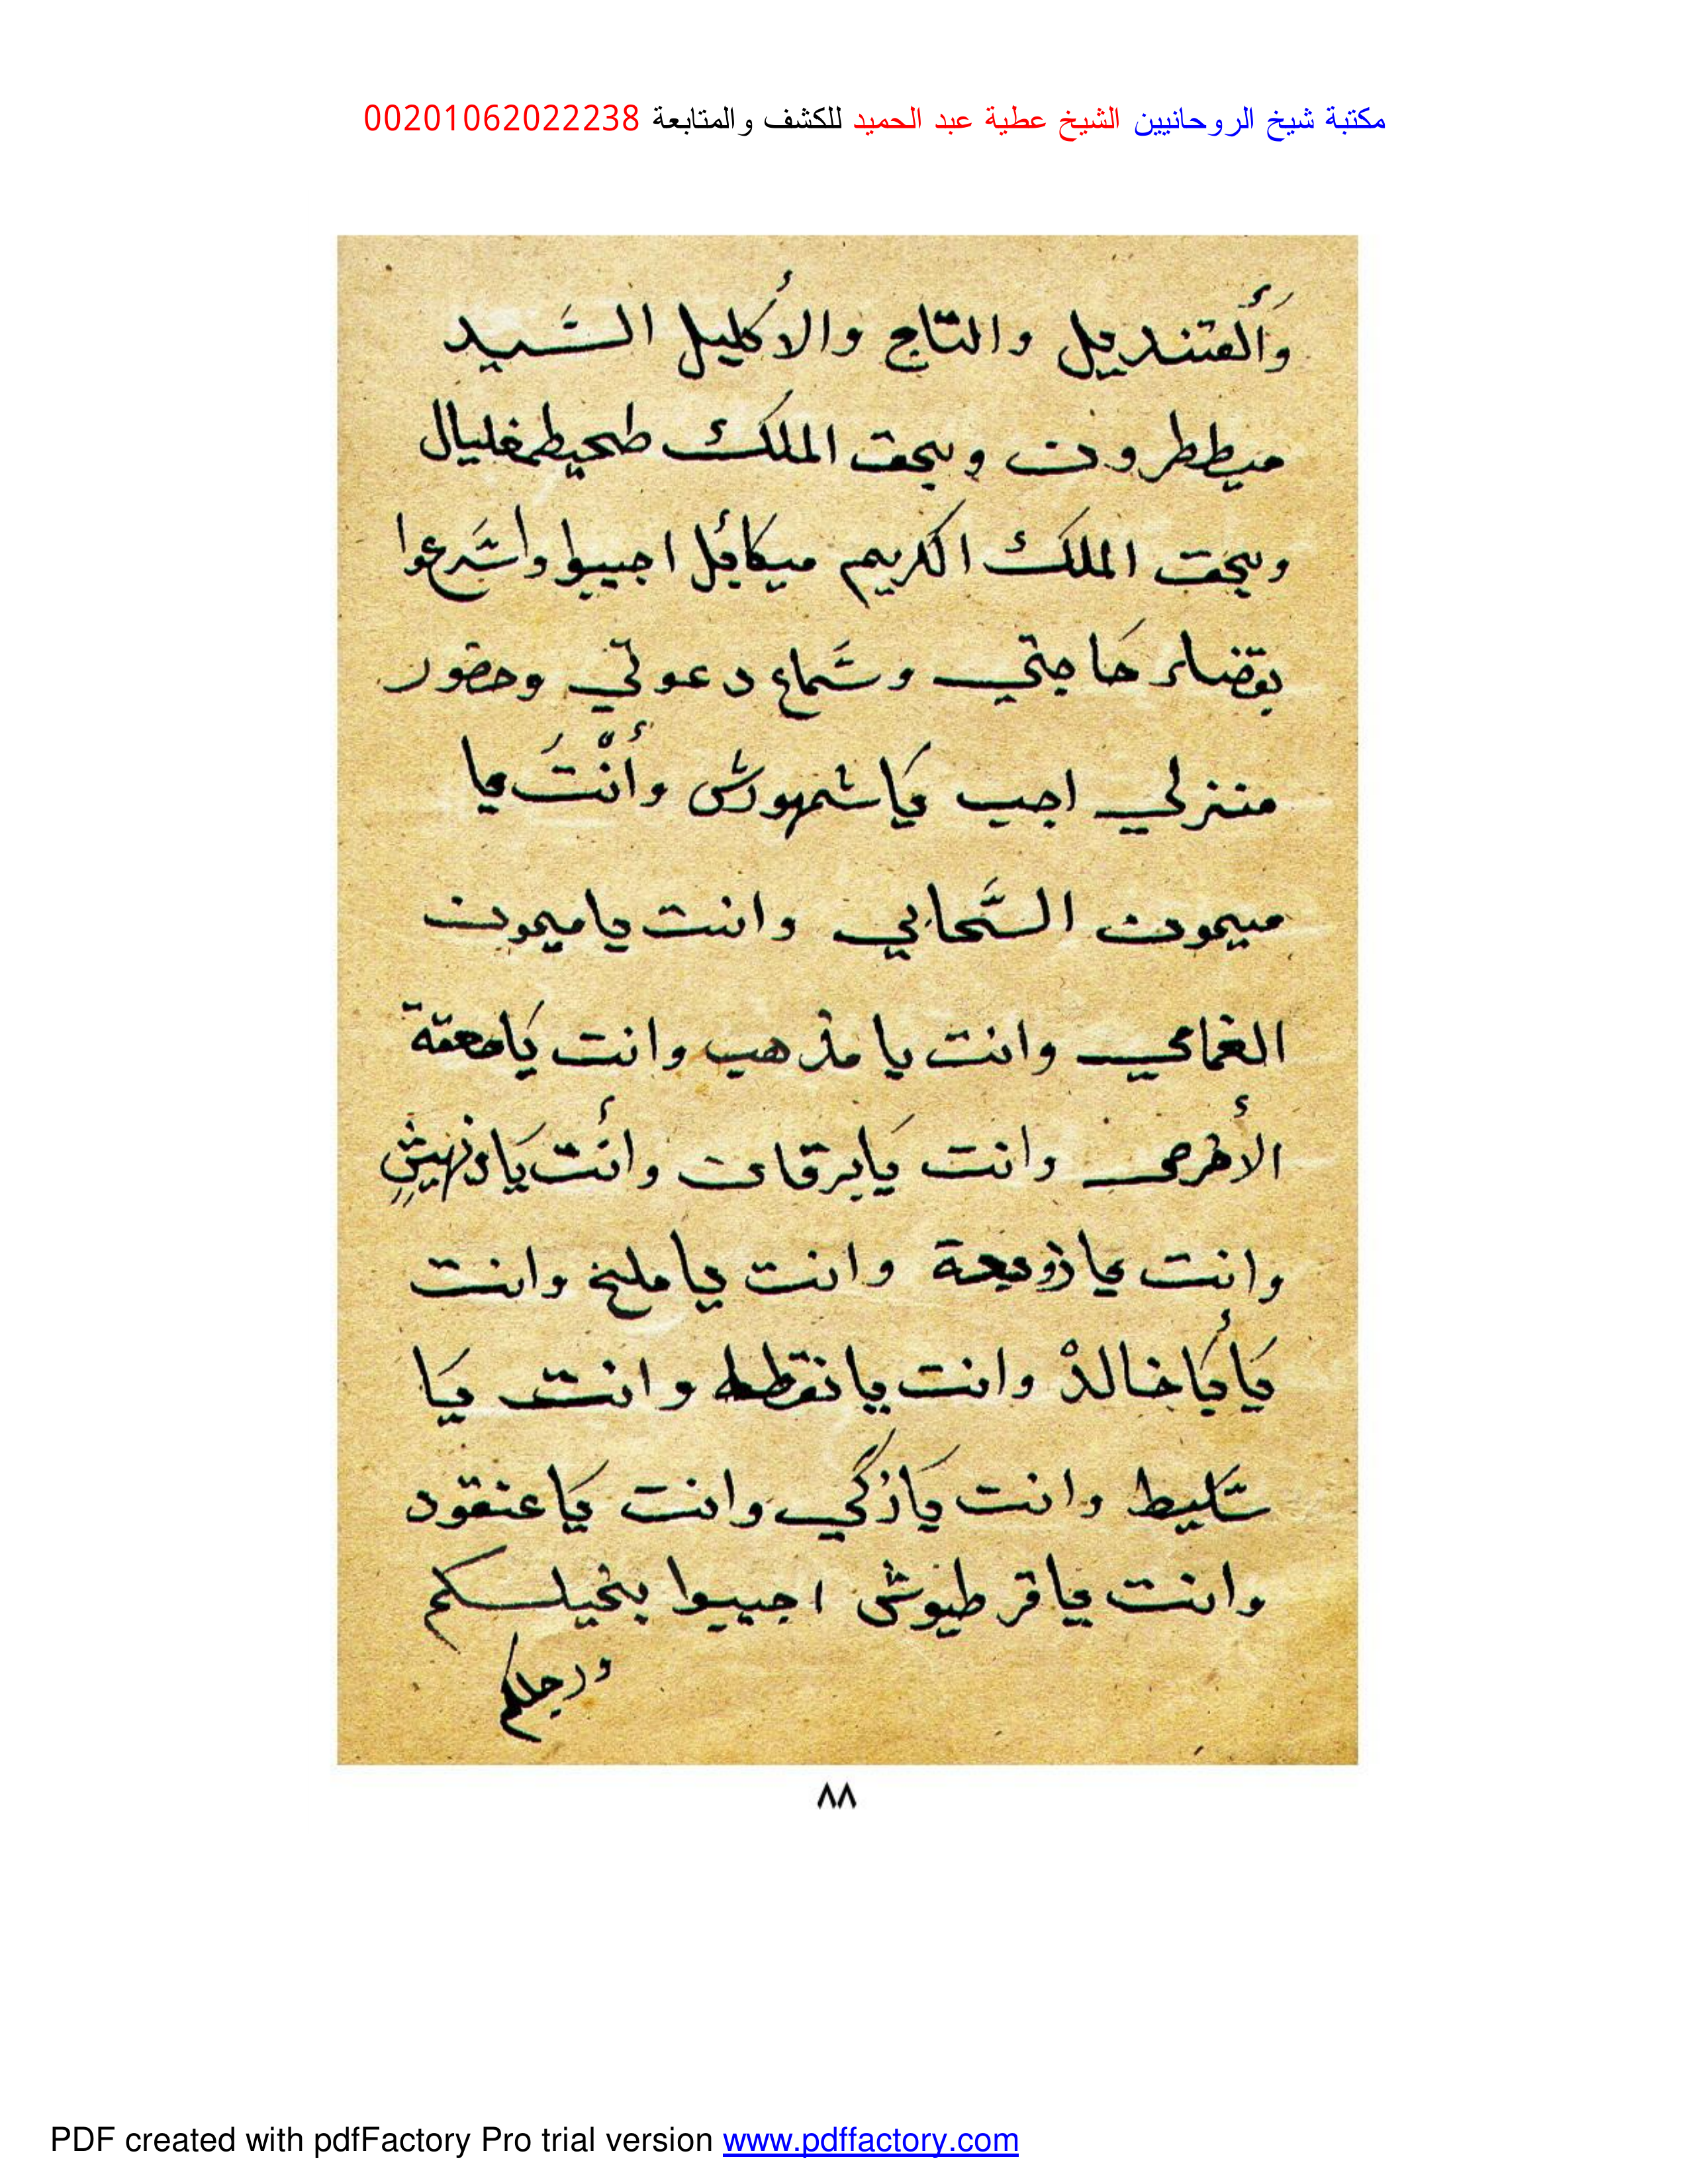 مكتبة شيخ الروحانيين الشيخ عطية عبد الحميد للكشف والمتابعة 00201062022238
وَأَلقنديل والتاج والأكليل السَّيد
ميططرون وبحق الملك طحيطمغليال
وبحق الملك الكريم ميكائل اجيبوا وأسَرعوا
بقضاء حَاجتي وسَماع دعوتي وحضور
منزلي اجب يَا شمهورش وأنْتَ يا
ميمون السَّحابي وانت يا ميمون
الغمامي وانت يا مذهب وانت يَا
وانت يَا برقان وأنت يَا
وانت يا زوبعة وانت يا مليخ وانت
يَا أَبَا خالدْ وانت يا وانت يَا
سَليط وانت يَا زكي وانت يَا عنقود
وانت يا قرطيوش اجيبوا بخيلكم
ورجلكم
٨٨
PDF created with pdfFactory Pro trial version www.pdffactory.com